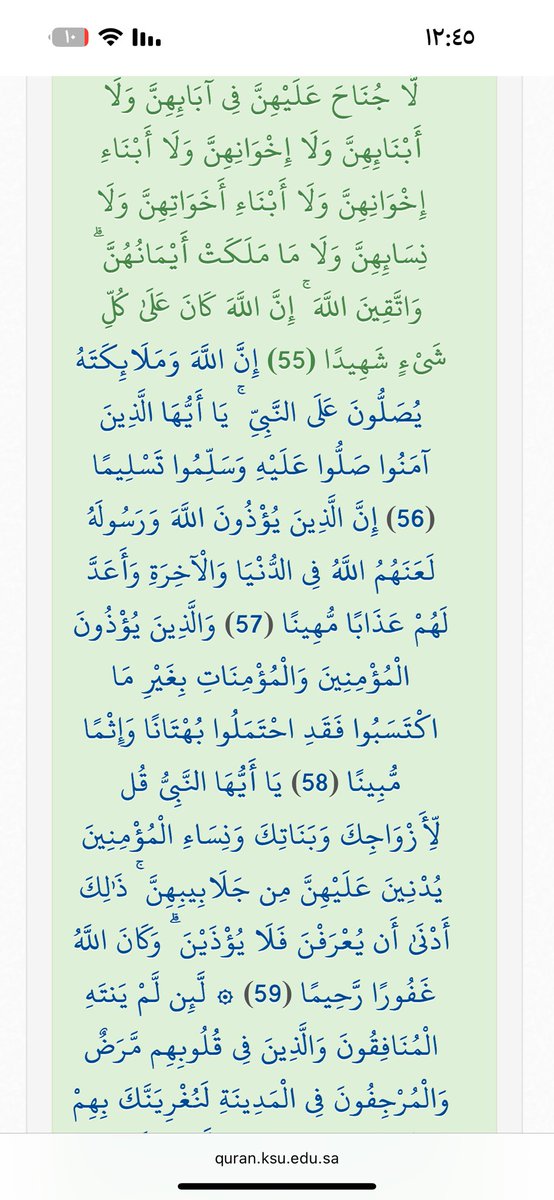 ١٢:٤٥
١٠
لَّا جُنَاحَ عَلَيْهِنَّ فِي آبَائِهِنَّ وَلَا
أَبْنَائِهِنَّ وَلَا إِخْوَانِهِنَّ وَلَا أَبْنَاءِ
إِخْوَانِهِنَّ وَلَا أَبْنَاءِ أَخَوَاتِهِنَّ وَلَا
نِسَائِهِنَّ وَلَا مَا مَلَكَتْ أَيْمَانُهُنَّ ۗ
وَاتَّقِينَ اللَّهَ ۚ إِنَّ اللَّهَ كَانَ عَلَىٰ كُلِّ
شَيْءٍ شَهِيدًا (55) إِنَّ اللَّهَ وَمَلَائِكَتَهُ
يُصَلُّونَ عَلَى النَّبِيِّ ۚ يَا أَيُّهَا الَّذِينَ
آمَنُوا صَلُّوا عَلَيْهِ وَسَلِّمُوا تَسْلِيمًا
(56) إِنَّ الَّذِينَ يُؤْذُونَ اللَّهَ وَرَسُولَهُ
لَعَنَهُمُ اللَّهُ فِي الدُّنْيَا وَالْآخِرَةِ وَأَعَدَّ
لَهُمْ عَذَابًا مُّهِينًا (57) وَالَّذِينَ يُؤْذُونَ
الْمُؤْمِنِينَ وَالْمُؤْمِنَاتِ بِغَيْرِ مَا
اكْتَسَبُوا فَقَدِ احْتَمَلُوا بُهْتَانًا وَإِثْمًا
مُّبِينًا (58) يَا أَيُّهَا النَّبِيُّ قُل
لِّأَزْوَاجِكَ وَبَنَاتِكَ وَنِسَاءِ الْمُؤْمِنِينَ
يُدْنِينَ عَلَيْهِنَّ مِن جَلَابِيبِهِنَّ ۚ ذَٰلِكَ
أَدْنَىٰ أَن يُعْرَفْنَ فَلَا يُؤْذَيْنَ ۗ وَكَانَ اللَّهُ
غَفُورًا رَّحِيمًا (59) ۞ لَّئِن لَّمْ يَنتَهِ
الْمُنَافِقُونَ وَالَّذِينَ فِي قُلُوبِهِم مَّرَضٌ
وَالْمُرْجِفُونَ فِي الْمَدِينَةِ لَنُغْرِيَنَّكَ بِهِمْ
quran.ksu.edu.sa